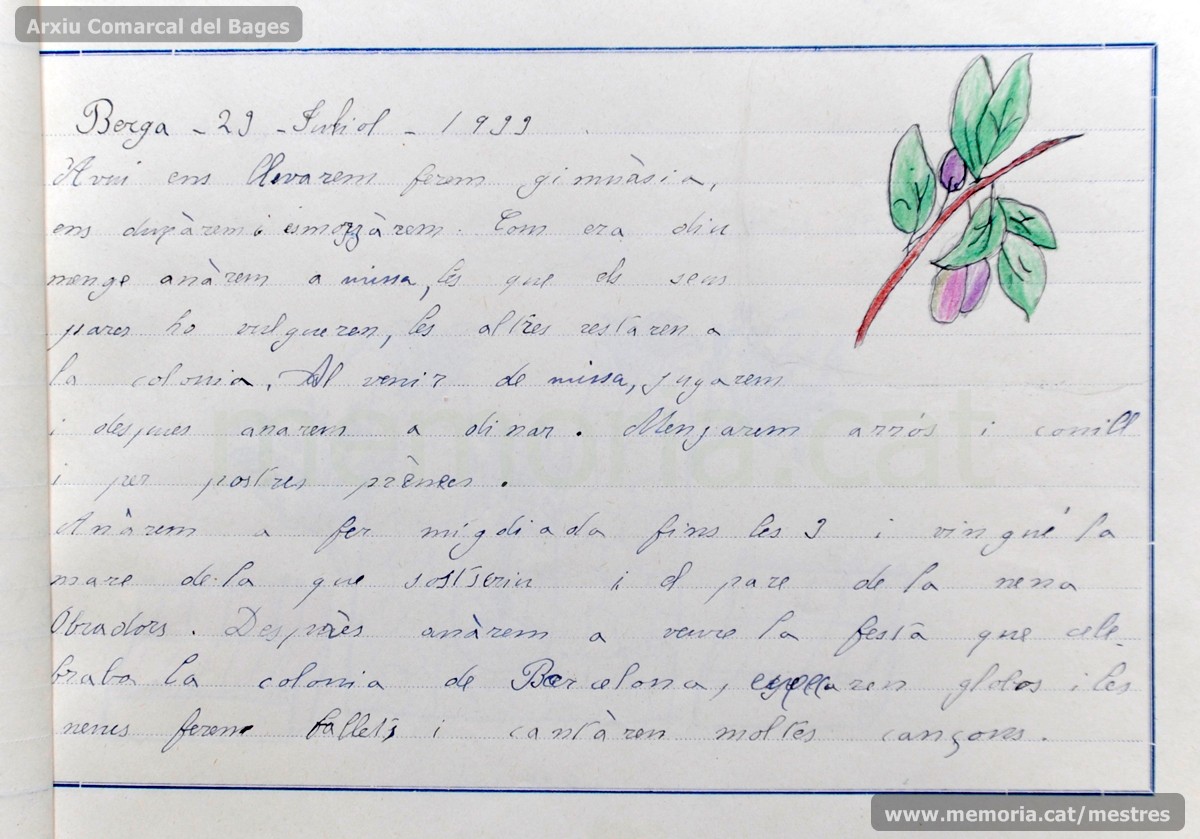 Arxiu Comarcal del Bages
Berga - 29 - Juliol - 1933
Avui ens llevarem ferem gimnàsia,
ens dutxàrem i esmorzàrem. Com era diu
menge anàrem a missa, les que els seus
pares ho vulgueren, les altres restaren a
la colonia. Al venir de missa, jugarem
i despues anarem a dinar. Menjarem arrós i conill
i per postres prènses.
Anàrem a fer migdiada fins les 3 i vingué la
mare de la que sostseriu i el pare de la nena
Obradors. Desprès anàrem a veure la festa que cele-
braba la colonia de Barcelona, globos i les
nenes ferem ballets i cantàren moltes cançons.
memoria.cat
www.memoria.cat/mestres